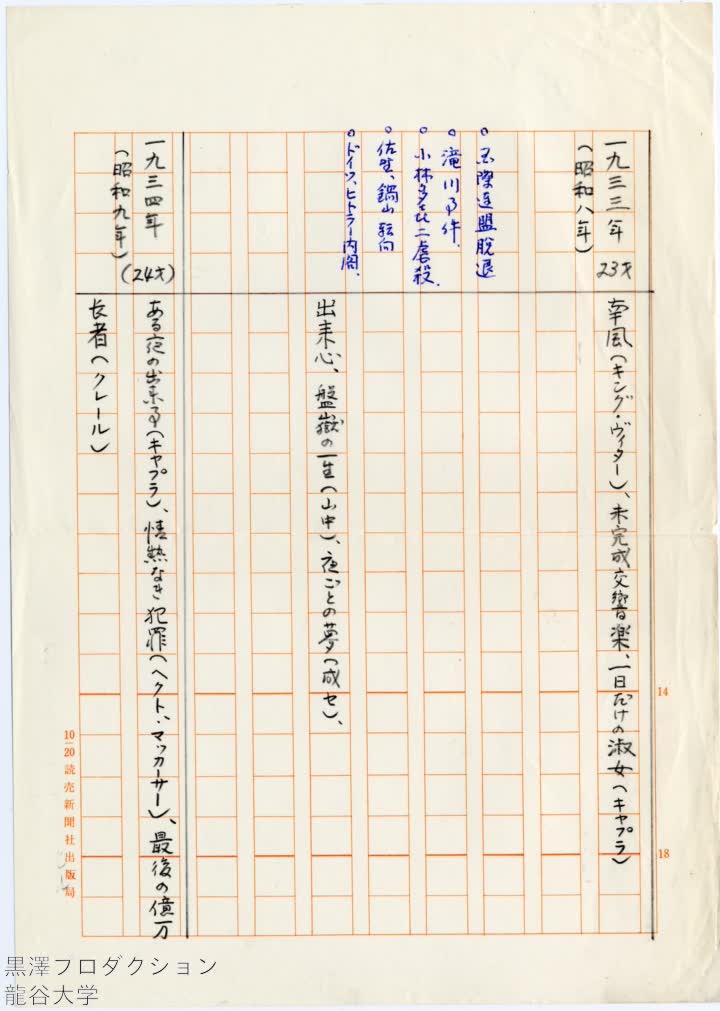 一九三三年 23才
(昭和八年)
南風(キング・ヴィダー)、未完成交響楽、一日だけの淑女(キャプラ)
。国際連盟脱退
。滝川事件、
。小林多喜二虐殺、
。佐野、鍋山転向
。ドイツ、ヒトラー内閣、
出来心、盤嶽の一生(山中)、夜ごとの夢(成セ)、
一九三四年 (24才)
(昭和九年)
ある夜の出来事(キャプラ)、情熱なき犯罪(ヘクト、マッカーサー)、最後の億万
長者(クレール)
14
18
10―20 読売新聞社出版局
黒澤プロダクション
龍谷大学